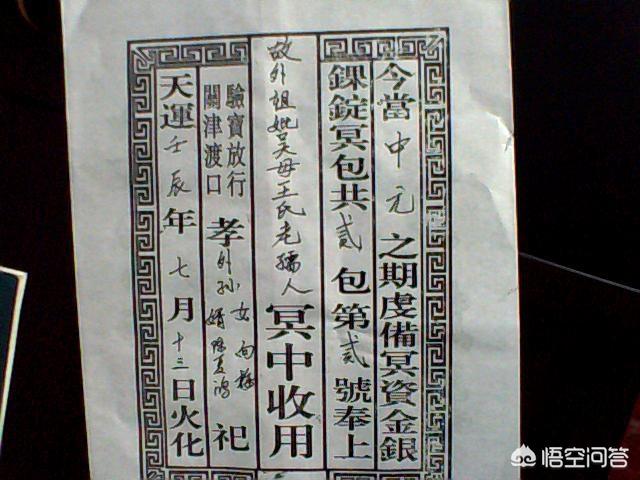 今當中元之期虔備冥資金銀
錁錠冥包共貳包第貳號奉上
故外祖妣吴母王氏老孺人冥中收用
關津渡口
驗寶放行
孝外孙女向
婿陈夏鸿
祀
天運壬辰年七月十三日火化
悟空问答